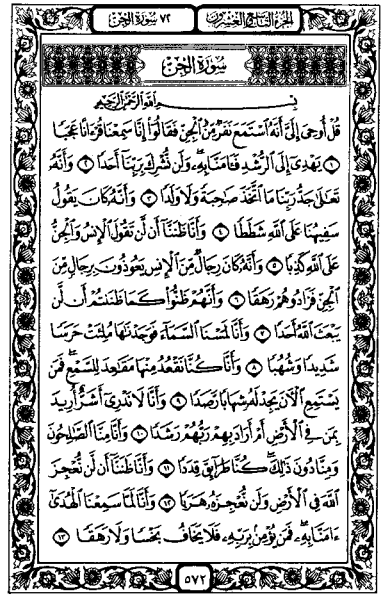 الجزء التاسع والعشرون ٧٢ سورة الجن
سورة الجن
بسم الله الرحمن الرحيم
قُلْ أُوحِىَ إِلَىَّ أَنَّهُ ٱسْتَمَعَ نَفَرٌ مِّنَ ٱلْجِنِّ فَقَالُوٓا۟ إِنَّا سَمِعْنَا قُرْءَانًا عَجَبًا
١ يَهْدِىٓ إِلَى ٱلرُّشْدِ فَـَٔامَنَّا بِهِۦ وَلَن نُّشْرِكَ بِرَبِّنَآ أَحَدًا ٢ وَأَنَّهُۥ
تَعَٰلَىٰ جَدُّ رَبِّنَا مَا ٱتَّخَذَ صَٰحِبَةً وَلَا وَلَدًا ٣ وَأَنَّهُۥ كَانَ يَقُولُ
سَفِيهُنَا عَلَى ٱللَّهِ شَطَطًا ٤ وَأَنَّا ظَنَنَّآ أَن لَّن تَقُولَ ٱلْإِنسُ وَٱلْجِنُّ
عَلَى ٱللَّهِ كَذِبًا ٥ وَأَنَّهُۥ كَانَ رِجَالٌ مِّنَ ٱلْإِنسِ يَعُوذُونَ بِرِجَالٍ مِّنَ
ٱلْجِنِّ فَزَادُوهُمْ رَهَقًا ٦ وَأَنَّهُمْ ظَنُّوا۟ كَمَا ظَنَنتُمْ أَن لَّن
يَبْعَثَ ٱللَّهُ أَحَدًا ٧ وَأَنَّا لَمَسْنَا ٱلسَّمَآءَ فَوَجَدْنَٰهَا مُلِئَتْ حَرَسًا
شَدِيدًا وَشُهُبًا ٨ وَأَنَّا كُنَّا نَقْعُدُ مِنْهَا مَقَٰعِدَ لِلسَّمْعِ فَمَن
يَسْتَمِعِ ٱلْـَٔانَ يَجِدْ لَهُۥ شِهَابًا رَّصَدًا ٩ وَأَنَّا لَا نَدْرِىٓ أَشَرٌّ أُرِيدَ
بِمَن فِى ٱلْأَرْضِ أَمْ أَرَادَ بِهِمْ رَبُّهُمْ رَشَدًا ١٠ وَأَنَّا مِنَّا ٱلصَّٰلِحُونَ
وَمِنَّا دُونَ ذَٰلِكَ كُنَّا طَرَآئِقَ قِدَدًا ١١ وَأَنَّا ظَنَنَّآ أَن لَّن نُّعْجِزَ
ٱللَّهَ فِى ٱلْأَرْضِ وَلَن نُّعْجِزَهُۥ هَرَبًا ١٢ وَأَنَّا لَمَّا سَمِعْنَا ٱلْهُدَىٰٓ
ءَامَنَّا بِهِۦ فَمَن يُؤْمِنۢ بِرَبِّهِۦ فَلَا يَخَافُ بَخْسًا وَلَا رَهَقًا ١٣
٥٧٢